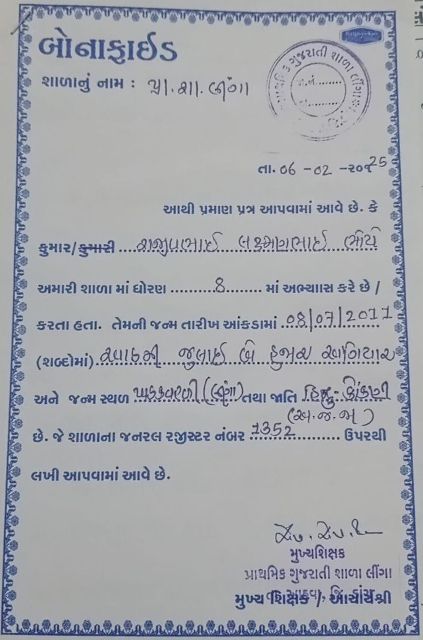 બોનાફાઈડ
શાળાનું નામ : પ્રા.શા.લીંગા
પ્રાથમિક ગુજરાતી શાળા લીંગા
તા. 06 - 02 - ૨૦૧ 25
આથી પ્રમાણ પત્ર આપવામાં આવે છે. કે
કુમાર/કુમારી લક્ષ્મણભાઈ ભોયે
અમારી શાળા માં ધોરણ 8 માં અભ્યાસ કરે છે /
કરતા હતા. તેમની જન્મ તારીખ આંકડામાં 08/07/2011
(શબ્દોમાં) આઠમી જુલાઈ બે હજાર અગિયાર
અને જન્મ સ્થળ (લીંગા) તથા જાતિ હિન્દુ-કોંકણી
(અ.જ.જા)
છે. જે શાળાના જનરલ રજીસ્ટર નંબર 7352 ઉપરથી
લખી આપવામાં આવે છે.
મુખ્યશિક્ષક
પ્રાથમિક ગુજરાતી શાળા લીંગા
તા. આહવા, જિ. ડાંગ
મુખ્ય શિક્ષક / આચાર્યશ્રી